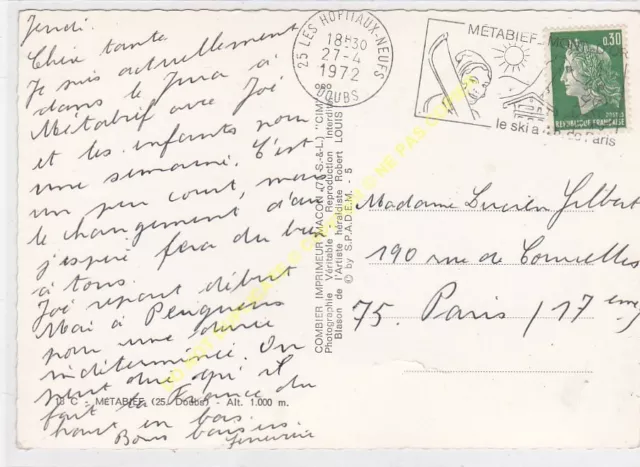 Jeudi.
Chère tante
Je suis actuellement
dans le Jura à
Métabief avec Joé
et les enfants pour
une semaine. C'est
un peu court, mais
le changement d'air
j'espère fera du bien
à tous.
Joé repart début
Mai à
pour une durée
indéterminée. On
peut dire qu'il
fait la France du
haut en bas.
Bons baisers
13 C - METABIEF (25. Doubs) - Alt. 1.000 m.
COMBIER IMPRIMEUR MACON (71 S.-&-L.) "CIM"
Photographie Véritable - Reproduction Interdite
Blason de l'Artiste héraldiste Robert LOUIS
© by S.P.A.D.E.M. 5
25 LES HOPITAUX-NEUFS
18H30
27-4
1972
DOUBS
MÉTABIEF-MONT
le ski a
Paris
0,30
REPUBLIQUE FRANÇAISE
Madame Lucien Gilbert
190 rue de Courcelles
75. Paris (17 eme)